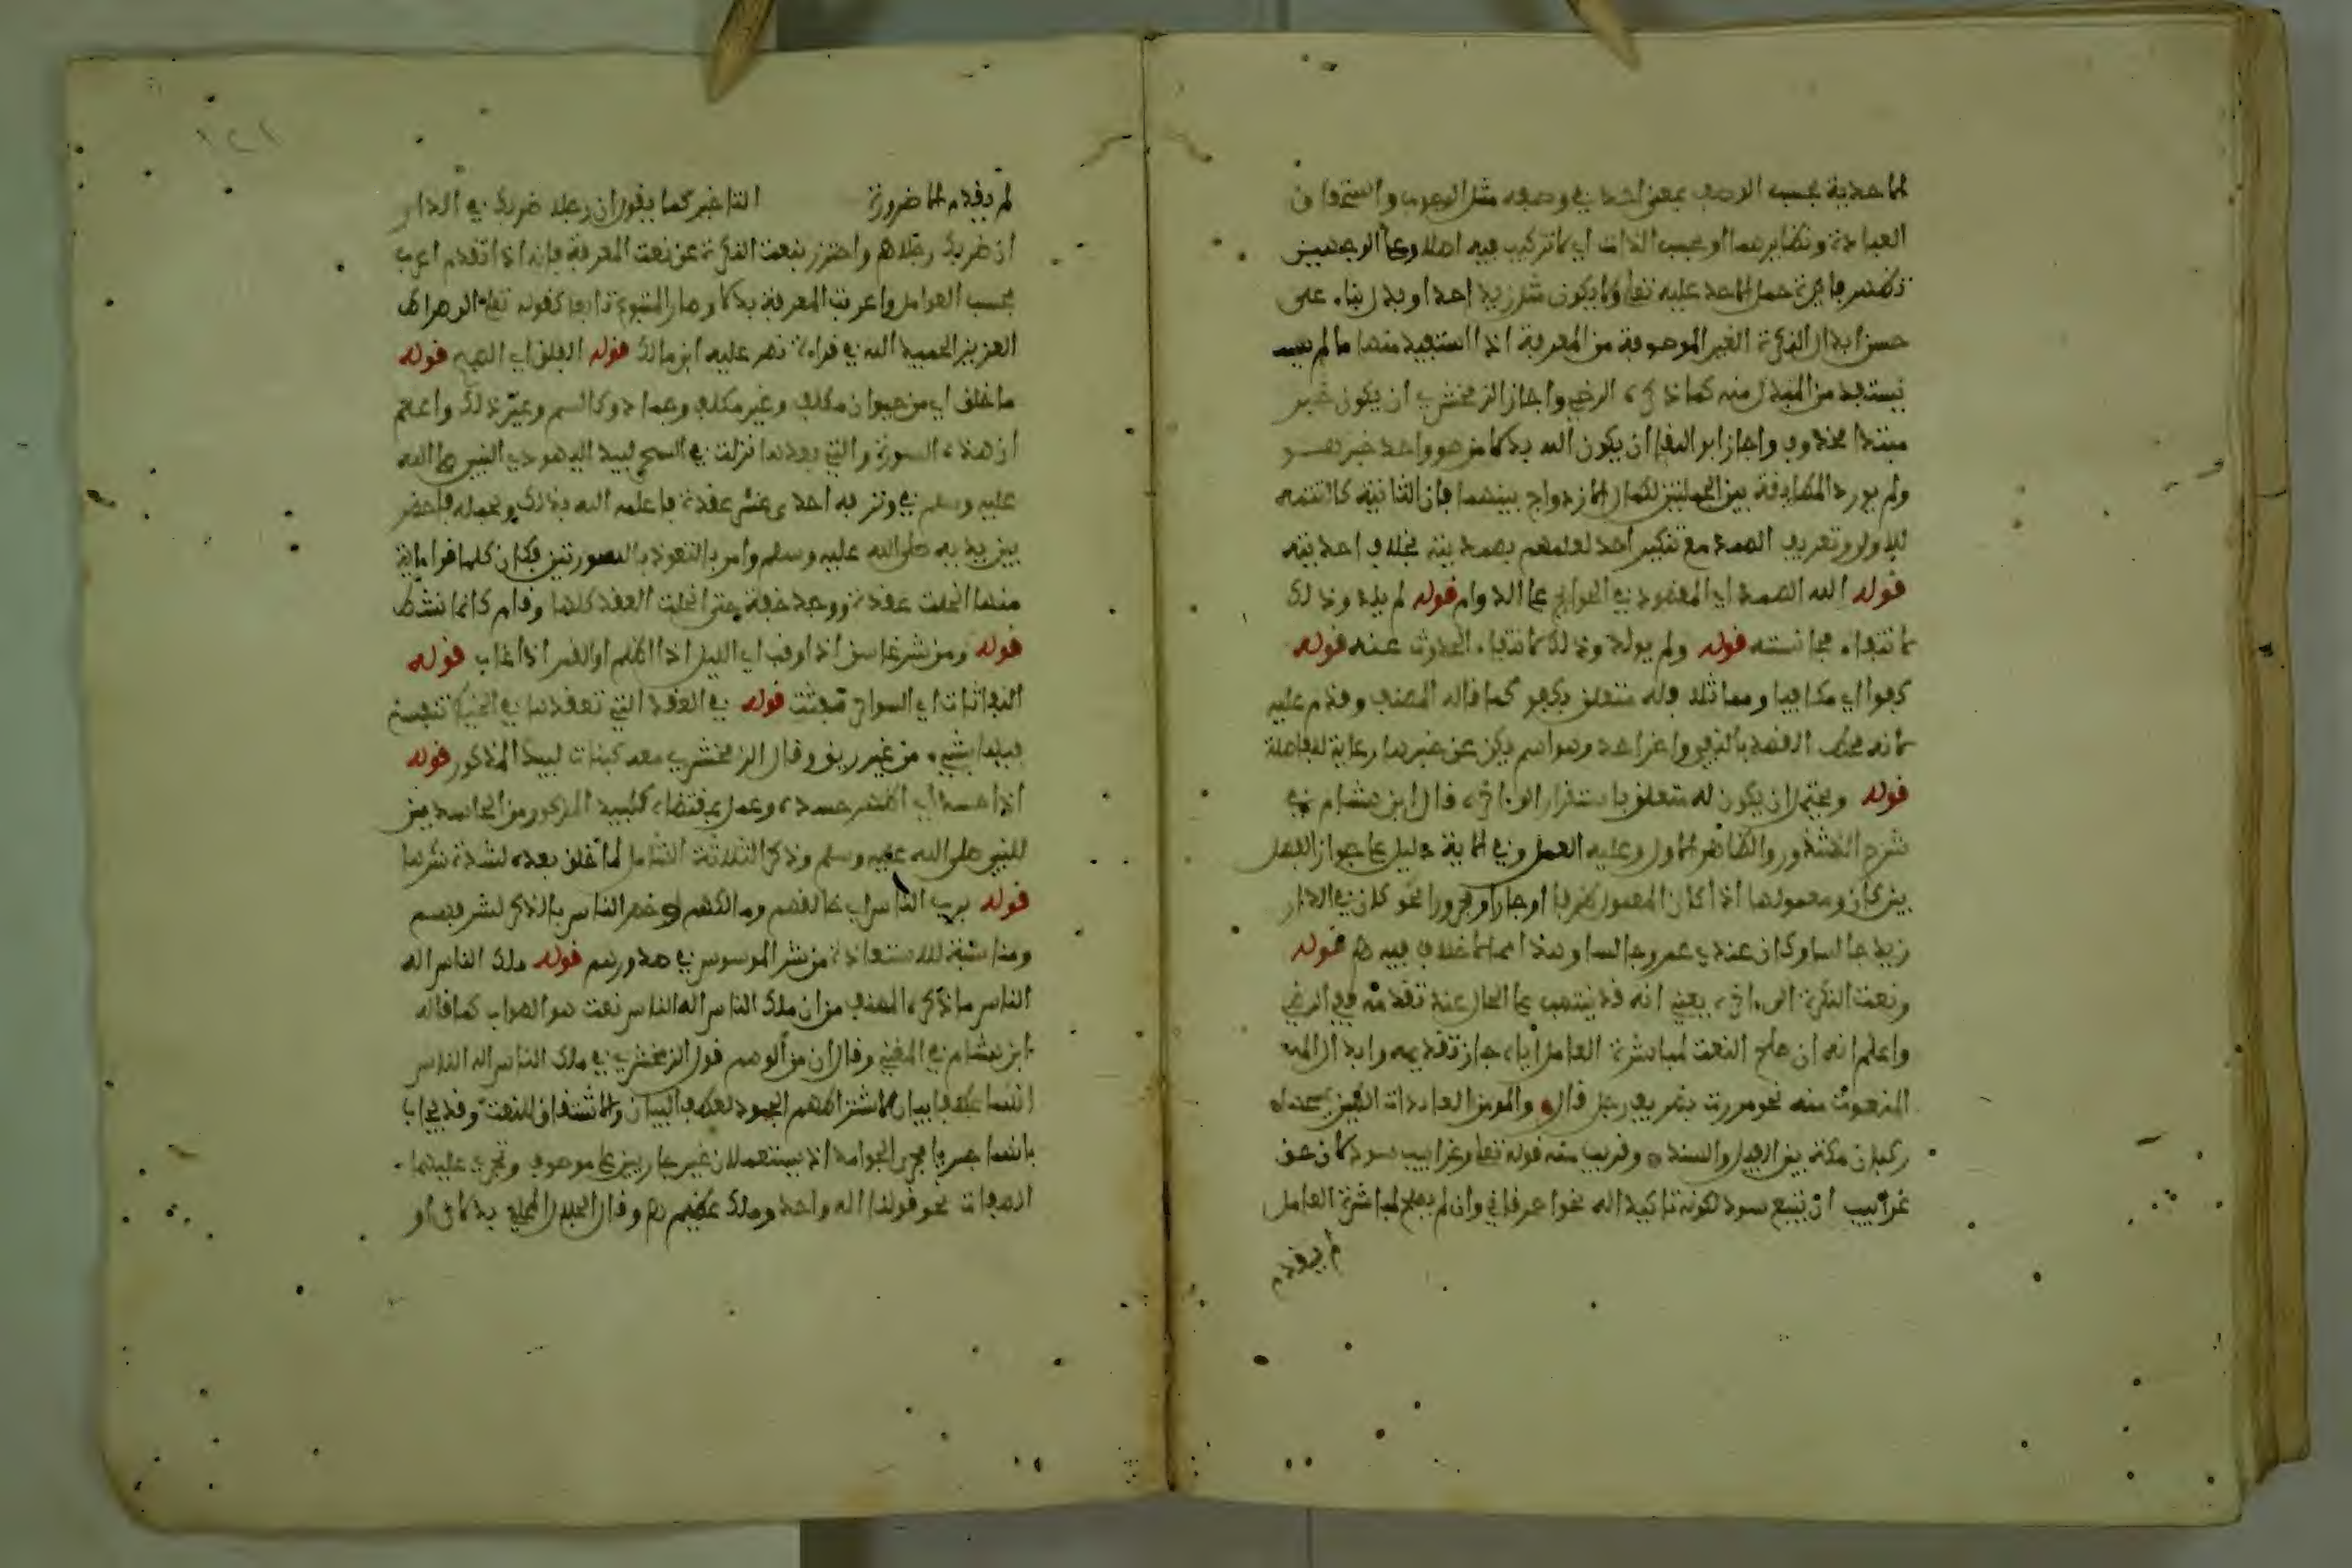 الاحدية بحسب الوصف بمعنى احد في وصفه مثل الوجوب واستحقاق
العبادة ونظايرهما او بحسب الذات اي لا تركيب فيه اصلا وعلى الوجهين
تظهر فايدة حمل الاحد عليه تعالى ولا يكون مثل زيد احد او بدل بناء على
حسن ابدال النكرة الغير الموصوفة من المعرفة اذا استفيد منها ما لم
يستفد من المبدل منه كما ذكره الرضي واجاز الزمخشري ان يكون خبر
مبتدا محذوف واجاز ابو البقا ان يكون الله بدلا من هو واحد خبر هو
ولم يورد العاطفة بين الجملتين لكمال الازدواج بينهما فان الثانية كالتتمة
للاولى وتعريف الصمد مع تنكير احد لعلمهم بصمديته بخلاف احديته
قوله الله الصمد اي المقصود في الحوايج على الدوام قوله لم يلد وذلك
لانتفاء مجانسته قوله ولم يولد وذلك لانتفاء الحدوث عنه قوله
كفوا اي مكافيا ومماثلا فله متعلق بكفو كما قاله المصنف وقدم عليه
لانه محط القصد بالنفي واخر احد وهو اسم يكن عن خبرها رعاية للفاصلة
قوله ويحتمل ان يكون له متعلق باستقرار الى اخره قال ابن هشام في
شرح الشذور والظاهر الاول وعليه العمل وفي الاية دليل على جواز الفصل
بين كان ومعمولها اذا كان المعمول ظرفا او جارا ومجرورا نحو كان في الدار
زيد جالسا وكان عندي عمرو جالسا وهذا مما لا خلاف فيه قوله
ونعت النكرة الى اخره يعني انه قد ينتصب على الحال عند تقدمه ففي الرضي
واعلم انه ان صلح النعت لمباشرة العامل اياه جاز تقديمه وابدال
المنعوت منه نحو مررت بظريف رجل قال والمومن العايذات الطير
ركبان مكة بين الغيل والسند وقريب منه قوله تعالى وغرابيب سود لان حق
غرابيب ان يتبع سود لكونه تاكيدا له نحو احمر قاني وان لم يصلح لمباشرة العامل
لم يقدم
لم يقدم الا ضرورة التاخير كما يقول ان رجلا ضربك في الدار
ان ضربك رجلا هم واحترز بنعت النكرة عن نعت المعرفة فانه اذا تقدم اعرب
بحسب العوامل واعربت المعرفة بدلا وصار المتبوع تابعا كقوله تعالى الى صراط
العزيز الحميد الله في قراءة نص عليه ابن مالك قوله الفلق اي الصبح قوله
ما خلق اي من حيوان مكلف وغير مكلف وجماد وكالسم وغير ذلك واعلم
ان هذه السورة والتي بعدها نزلت في السحر لبيد اليهودي النبي صلى الله
عليه وسلم في وتر به احدى عشر عقدة فاعلمه الله بذلك وبمحله فاحضر
بين يديه صلى الله عليه وسلم وامر بالتعوذ بالسورتين فكان كلما قرا اية
منها انحلت عقدة ووجد خفة حتى انحلت العقد كلها وقام كانما نشط
قوله ومن شر غاسق اذا وقب اي الليل اذا اظلم او القمر اذا غاب قوله
النفاثات اي السواحر تنفث قوله في العقد التي تعقدها في الخيط تنفخ
فيها بشيء من غير ريق وقال الزمخشري معه كبنات لبيد المذكور قوله
اذا حسد اي اظهر حسده وعمل بمقتضاه كلبيد المذكور من الحاسدين
للنبي صلى الله عليه وسلم وذكر الثلاثة الشامل لها ما خلق بعده لشدة شرها
قوله برب الناس اي خالقهم ومالكهم وخص الناس بالذكر لشرفهم
ومناسبة للاستعاذة من شر الموسوس في صدورهم قوله ملك الناس اله
الناس ما ذكره المصنف من ان ملك الناس اله الناس نعت هو الصواب كما قاله
ابن هشام في المغني وقال ان من الوهم قول الزمخشري في ملك الناس اله الناس
انهما عطفا بيان لاشتراطهم الجمود لعطف البيان والاشتقاق للنعت وقد يجاب
بانهما اجريا مجرى الجوامد اذ يستعملان غير جاريين على موصوف وتجري عليهما
الصفات نحو قولنا اله واحد وملك عظيم وقال الجلال المحلي بدلان او